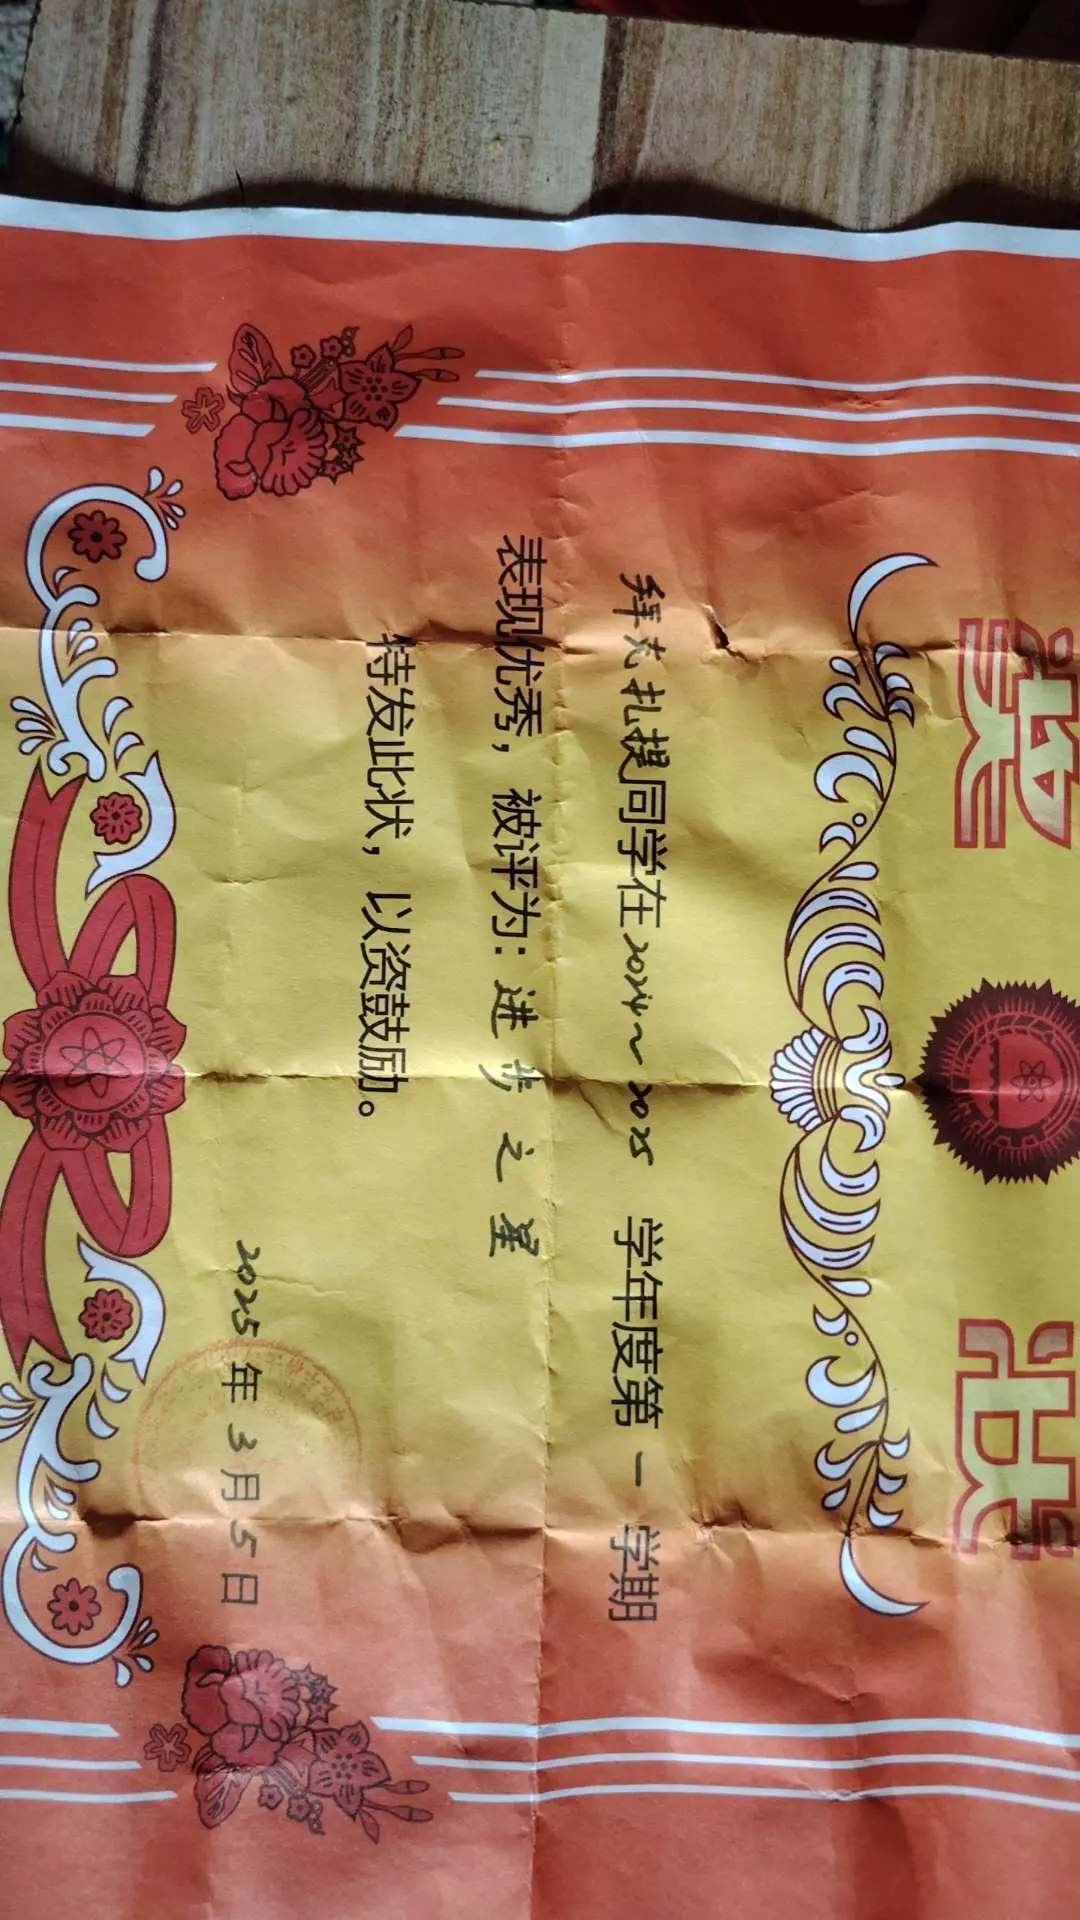 奖 状
拜夫扎提同学在2024~2025 学年度第一学期
表现优秀，被评为：进步之星
特发此状，以资鼓励。
2025年3月5日